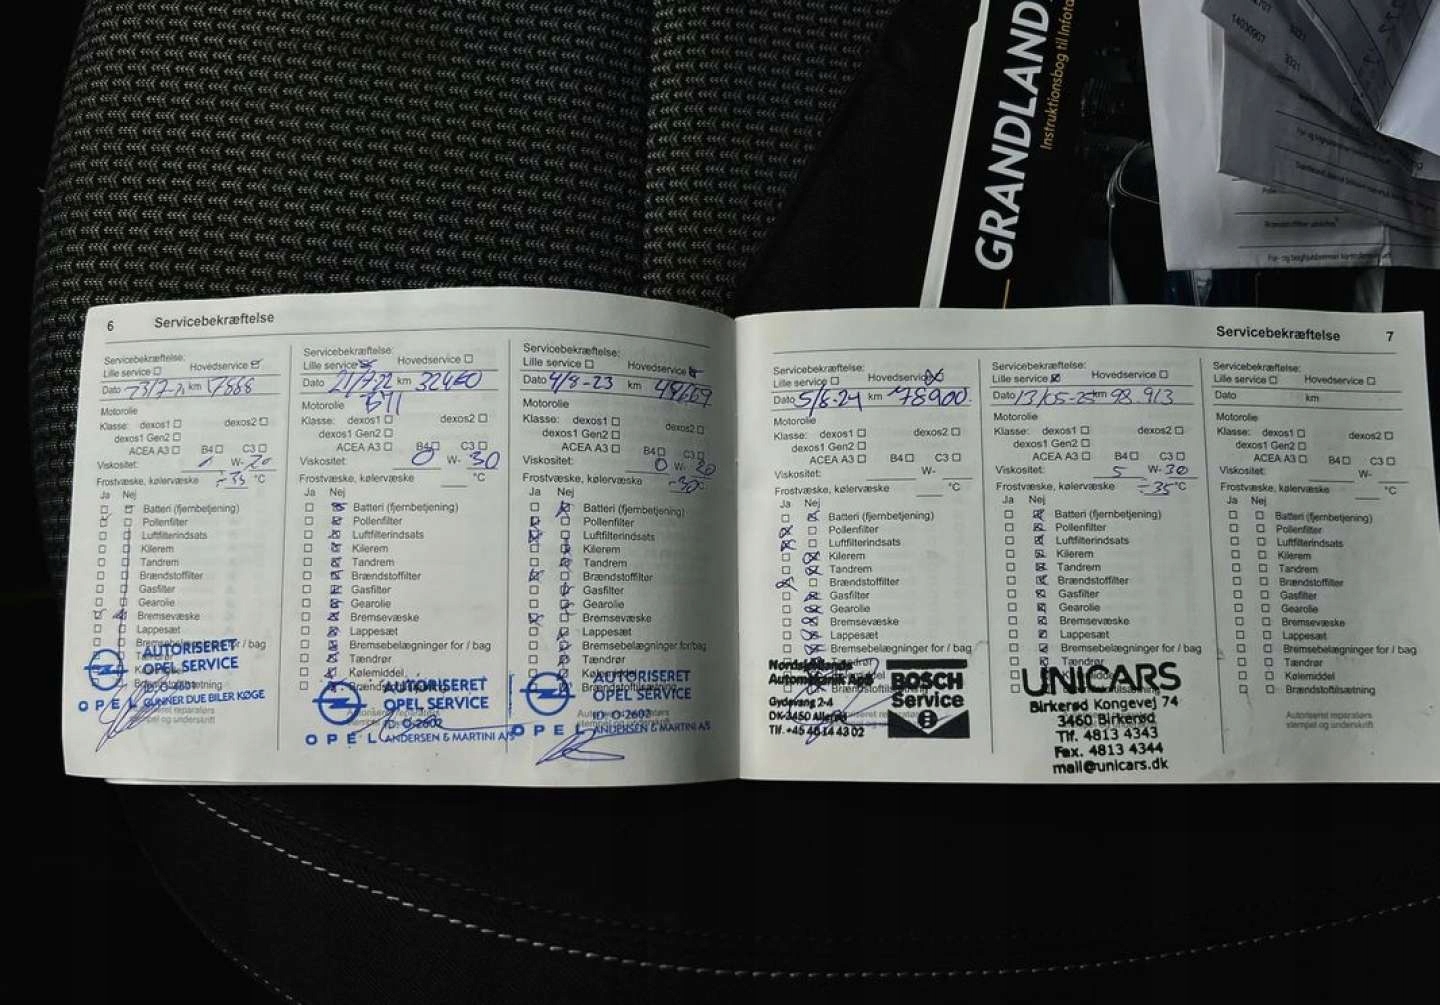 GRANDLAND
Instruktionsbog til Infota
14030907
3321
6 Servicebekræftelse
Servicebekræftelse:
Lille service Hovedservice
Dato km
Motorolie
Klasse: dexos1 dexos2
dexos1 Gen2
ACEA A3 B4 C3
Viskositet: W-
-35 °C
Frostvæske, kølervæske
Ja Nej
Batteri (fjernbetjening)
Pollenfilter
Luftfilterindsats
Kilerem
Tandrem
Brændstoffilter
Gasfilter
Gearolie
Bremsevæske
Lappesæt
Bremsebelægninger for / bag
AUTORISERET
OPEL SERVICE
ID: O-4601
OPEL GUNNER DUE BILER KØGE
stempel og underskrift
Servicebekræftelse:
Lille service Hovedservice
Dato 21/7-22 km 32460
Motorolie B71
Klasse: dexos1 dexos2
dexos1 Gen2
ACEA A3 B4 C3
Viskositet: 0 W- 30
Frostvæske, kølervæske °C
Ja Nej
Batteri (fjernbetjening)
Pollenfilter
Luftfilterindsats
Kilerem
Tandrem
Brændstoffilter
Gasfilter
Gearolie
Bremsevæske
Lappesæt
Bremsebelægninger for / bag
Tændrør
Kølemiddel
AUTORISERET
OPEL SERVICE
ID: O-2602
OPEL ANDERSEN & MARTINI A/S
Servicebekræftelse:
Lille service Hovedservice
Dato 4/8-23 km
Motorolie
Klasse: dexos1 dexos2
dexos1 Gen2
ACEA A3 B4 C3
Viskositet: 0 W- 20
Frostvæske, kølervæske -30°C
Ja Nej
Batteri (fjernbetjening)
Pollenfilter
Luftfilterindsats
Kilerem
Tandrem
Brændstoffilter
Gasfilter
Gearolie
Bremsevæske
Lappesæt
Bremsebelægninger for/bag
Tændrør
Kølemiddel
AUTORISERET
OPEL SERVICE
ID: O-2602
OPEL ANDERSEN & MARTINI A/S
Autoriseret reparatørs
stempel og underskrift
Servicebekræftelse 7
Servicebekræftelse:
Lille service Hovedservice
Dato 5/8-24 km 78900
Motorolie
Klasse: dexos1 dexos2
dexos1 Gen2
ACEA A3 B4 C3
Viskositet: W-
Frostvæske, kølervæske °C
Ja Nej
Batteri (fjernbetjening)
Pollenfilter
Luftfilterindsats
Kilerem
Tandrem
Brændstoffilter
Gasfilter
Gearolie
Bremsevæske
Lappesæt
Bremsebelægninger for / bag
Tændrør
Automekanik ApS
Gydevang 2-4
DK-3450 Allerød
Tlf. +45 48 14 43 02
BOSCH
Service
Servicebekræftelse:
Lille service Hovedservice
Dato 13/05-25 km 98.913
Motorolie
Klasse: dexos1 dexos2
dexos1 Gen2
ACEA A3 B4 C3
Viskositet: 5 W- 30
Frostvæske, kølervæske -35°C
Ja Nej
Batteri (fjernbetjening)
Pollenfilter
Luftfilterindsats
Kilerem
Tandrem
Brændstoffilter
Gasfilter
Gearolie
Bremsevæske
Lappesæt
Bremsebelægninger for / bag
Tændrør
UNICARS
Birkerød Kongevej 74
3460 Birkerød
Tlf. 4813 4343
Fax. 4813 4344
mail@unicars.dk
Servicebekræftelse:
Lille service Hovedservice
Dato km
Motorolie
Klasse: dexos1 dexos2
dexos1 Gen2
ACEA A3 B4 C3
Viskositet: W-
Frostvæske, kølervæske °C
Ja Nej
Batteri (fjernbetjening)
Pollenfilter
Luftfilterindsats
Kilerem
Tandrem
Brændstoffilter
Gasfilter
Gearolie
Bremsevæske
Lappesæt
Bremsebelægninger for / bag
Tændrør
Kølemiddel
Brændstoftilsætning
Autoriseret reparatørs
stempel og underskrift